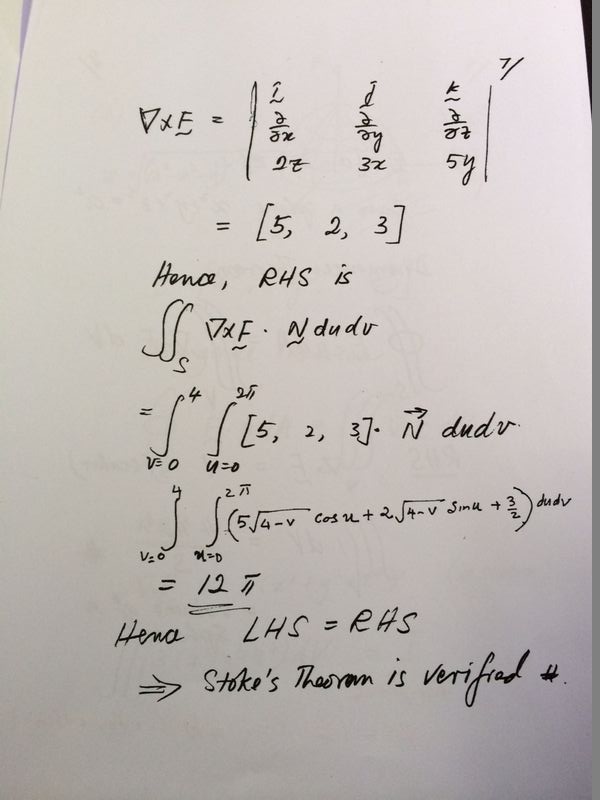 7/
∇×F = | i j k |
| ∂/∂x ∂/∂y ∂/∂z |
| 2z 3x 5y |
= [5, 2, 3]
Hence, RHS is
∬_S ∇×F · N dudv
= ∫_{v=0}^{4} ∫_{u=0}^{2π} [5, 2, 3]· N⃗ dudv.
∫_{v=0}^{4} ∫_{u=0}^{2π} (5√(4-v) cos u + 2√(4-v) sin u + 3/2) dudv
= 12 π
Hence LHS = RHS
⇒ Stoke's Theorem is verified #.